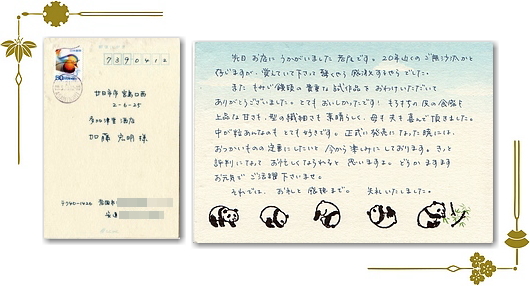 7390412
廿日市市宮島口西
2-6-25
多加津堂酒店
加藤 宏明 様
先日お店にうかがいました者です。20年近くのご無沙汰かと
存じますが、覚えていて下さって驚くやら感激するやらでした。
また、もみじ饅頭の貴重な試作品をおわけいただいて
ありがとうございました。とてもおいしかったです!もちもちの皮の食感と
上品な甘さ、型の繊細さも素晴らしく、母も大変喜んで頂きました。
中が粒あんなのもとても好きです。正式に発売になった暁には、
おつかいものの定番にしたいと今から楽しみにしております。きっと
評判になってお忙しくなられると思いますが、どうかますます
お元気でご活躍下さいませ。
それでは、お礼と感想まで。失礼いたしました。